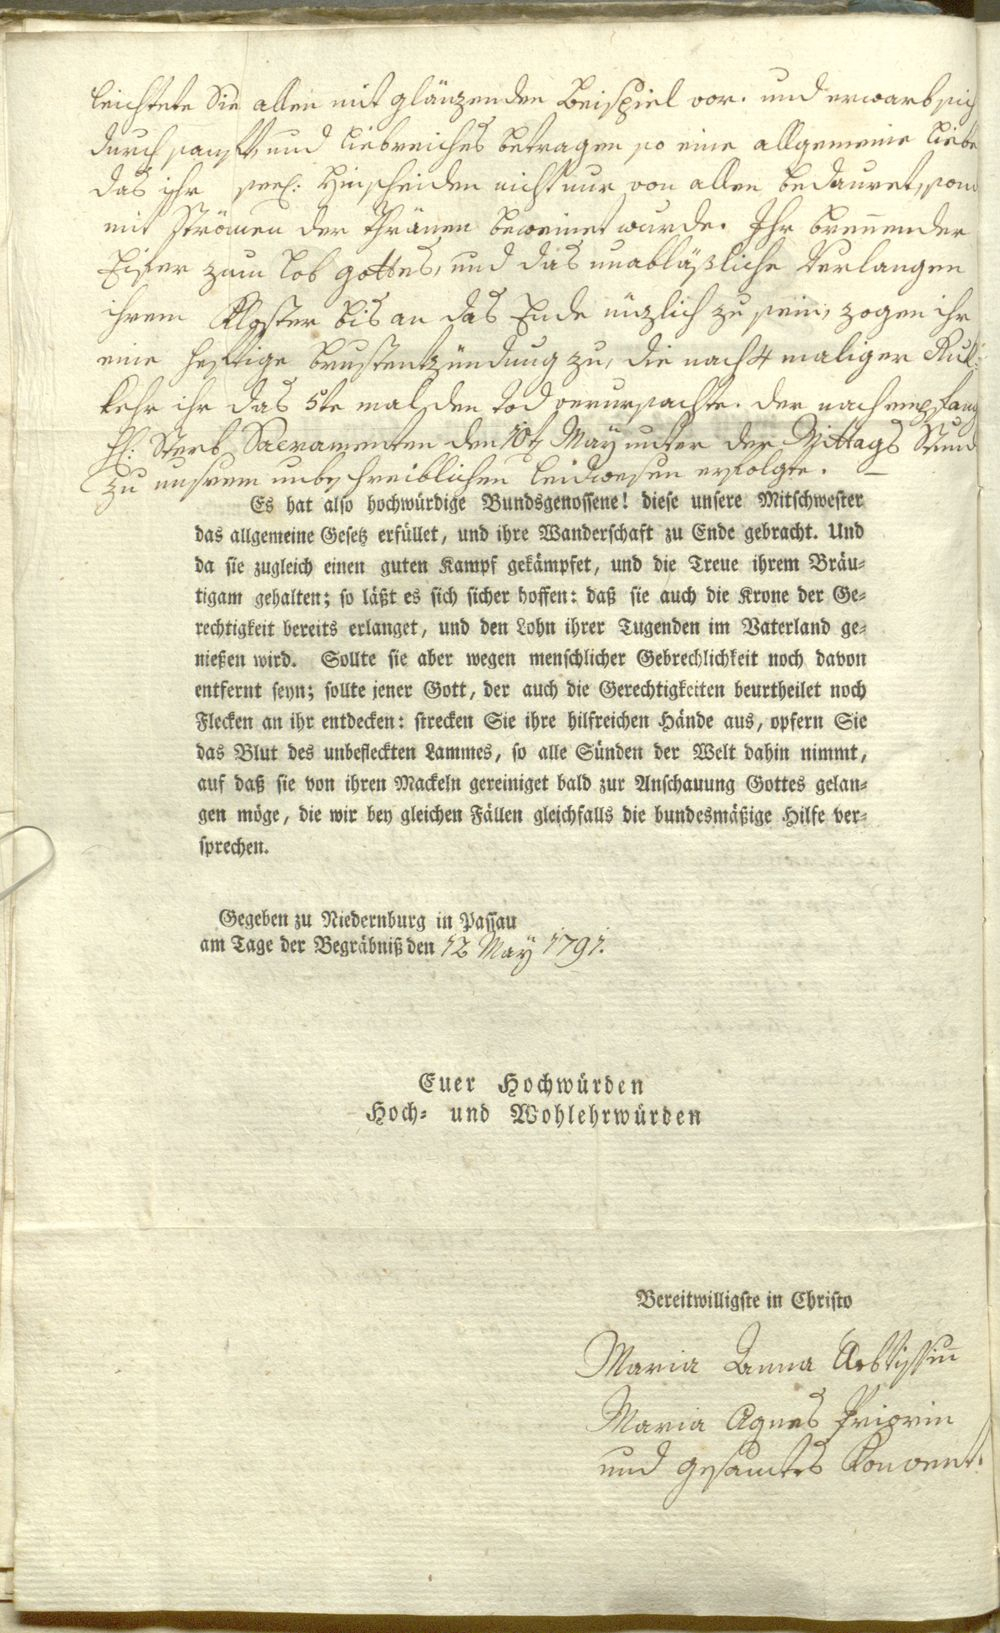 leichtete Sie allen mit glänzenden Beispiel vor. und erwarb sich
durch sanft und liebreiches betragen so eine allgemeine liebe
das ihr seel: Hinscheiden nicht nur von allen bedauret, son
mit Strömen der Thränen beweinet wurde. Ihr brennender
Eifer zum lob gottes, und das unabläßliche Verlangen
ihrem Kloster bis an das Ende nüzlich zu sein, zogen ihr
eine heftige brustentzündung zu, die nach 4 maliger Ruk:
kehr ihr das 5te mal den tod verursachte. der nach empfang
H: Sterb Sacramenten den 10t May unter der Mittags Stund
zu unsrem unbeschreiblichen leidwesen erfolgte.
Es hat also hochwürdige Bundsgenossene! diese unsere Mitschwester
das allgemeine Gesetz erfüllet, und ihre Wanderschaft zu Ende gebracht. Und
da sie zugleich einen guten Kampf gekämpfet, und die Treue ihrem Bräu-
tigam gehalten; so läßt es sich sicher hoffen: daß sie auch die Krone der Ge-
rechtigkeit bereits erlanget, und den Lohn ihrer Tugenden im Vaterland ge-
nießen wird. Sollte sie aber wegen menschlicher Gebrechlichkeit noch davon
entfernt seyn; sollte jener Gott, der auch die Gerechtigkeiten beurtheilet noch
Flecken an ihr entdecken: strecken Sie ihre hilfreichen Hände aus, opfern Sie
das Blut des unbefleckten Lammes, so alle Sünden der Welt dahin nimmt,
auf daß sie von ihren Mackeln gereiniget bald zur Anschauung Gottes gelan-
gen möge, die wir bey gleichen Fällen gleichfalls die bundesmäßige Hilfe ver-
sprechen.
Gegeben zu Niedernburg in Passau
am Tage der Begräbniß den 12 May 1791.
Euer Hochwürden
Hoch- und Wohlehrwürden
Bereitwilligste in Christo
Maria Anna Aebtissin
Maria Agnes Priorin
und gesamtes Konvent.